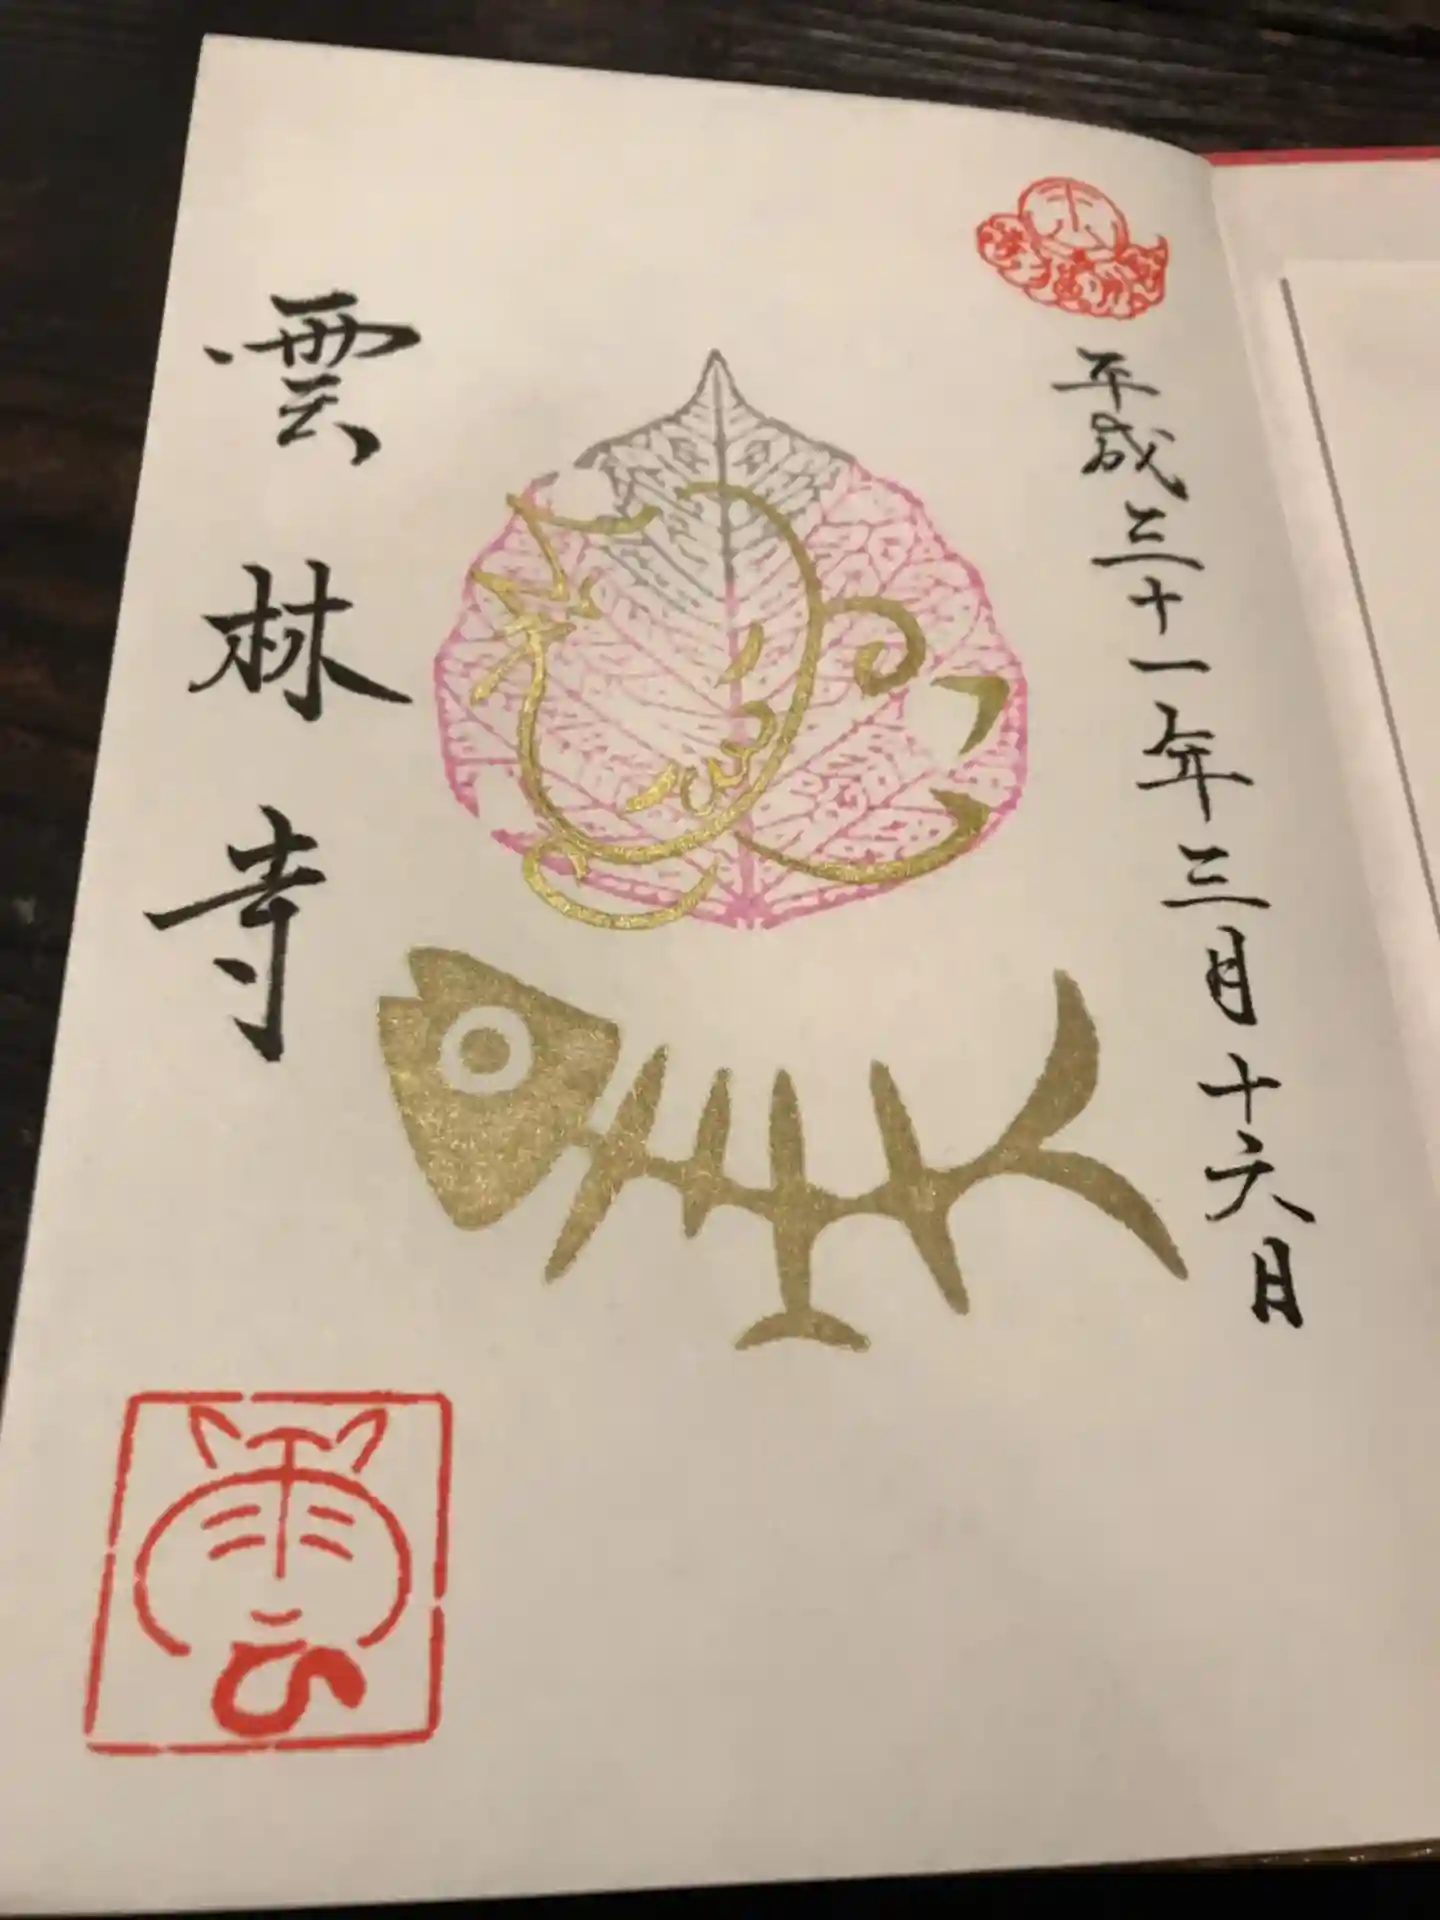 平成三十一年三月十六日
雲林寺